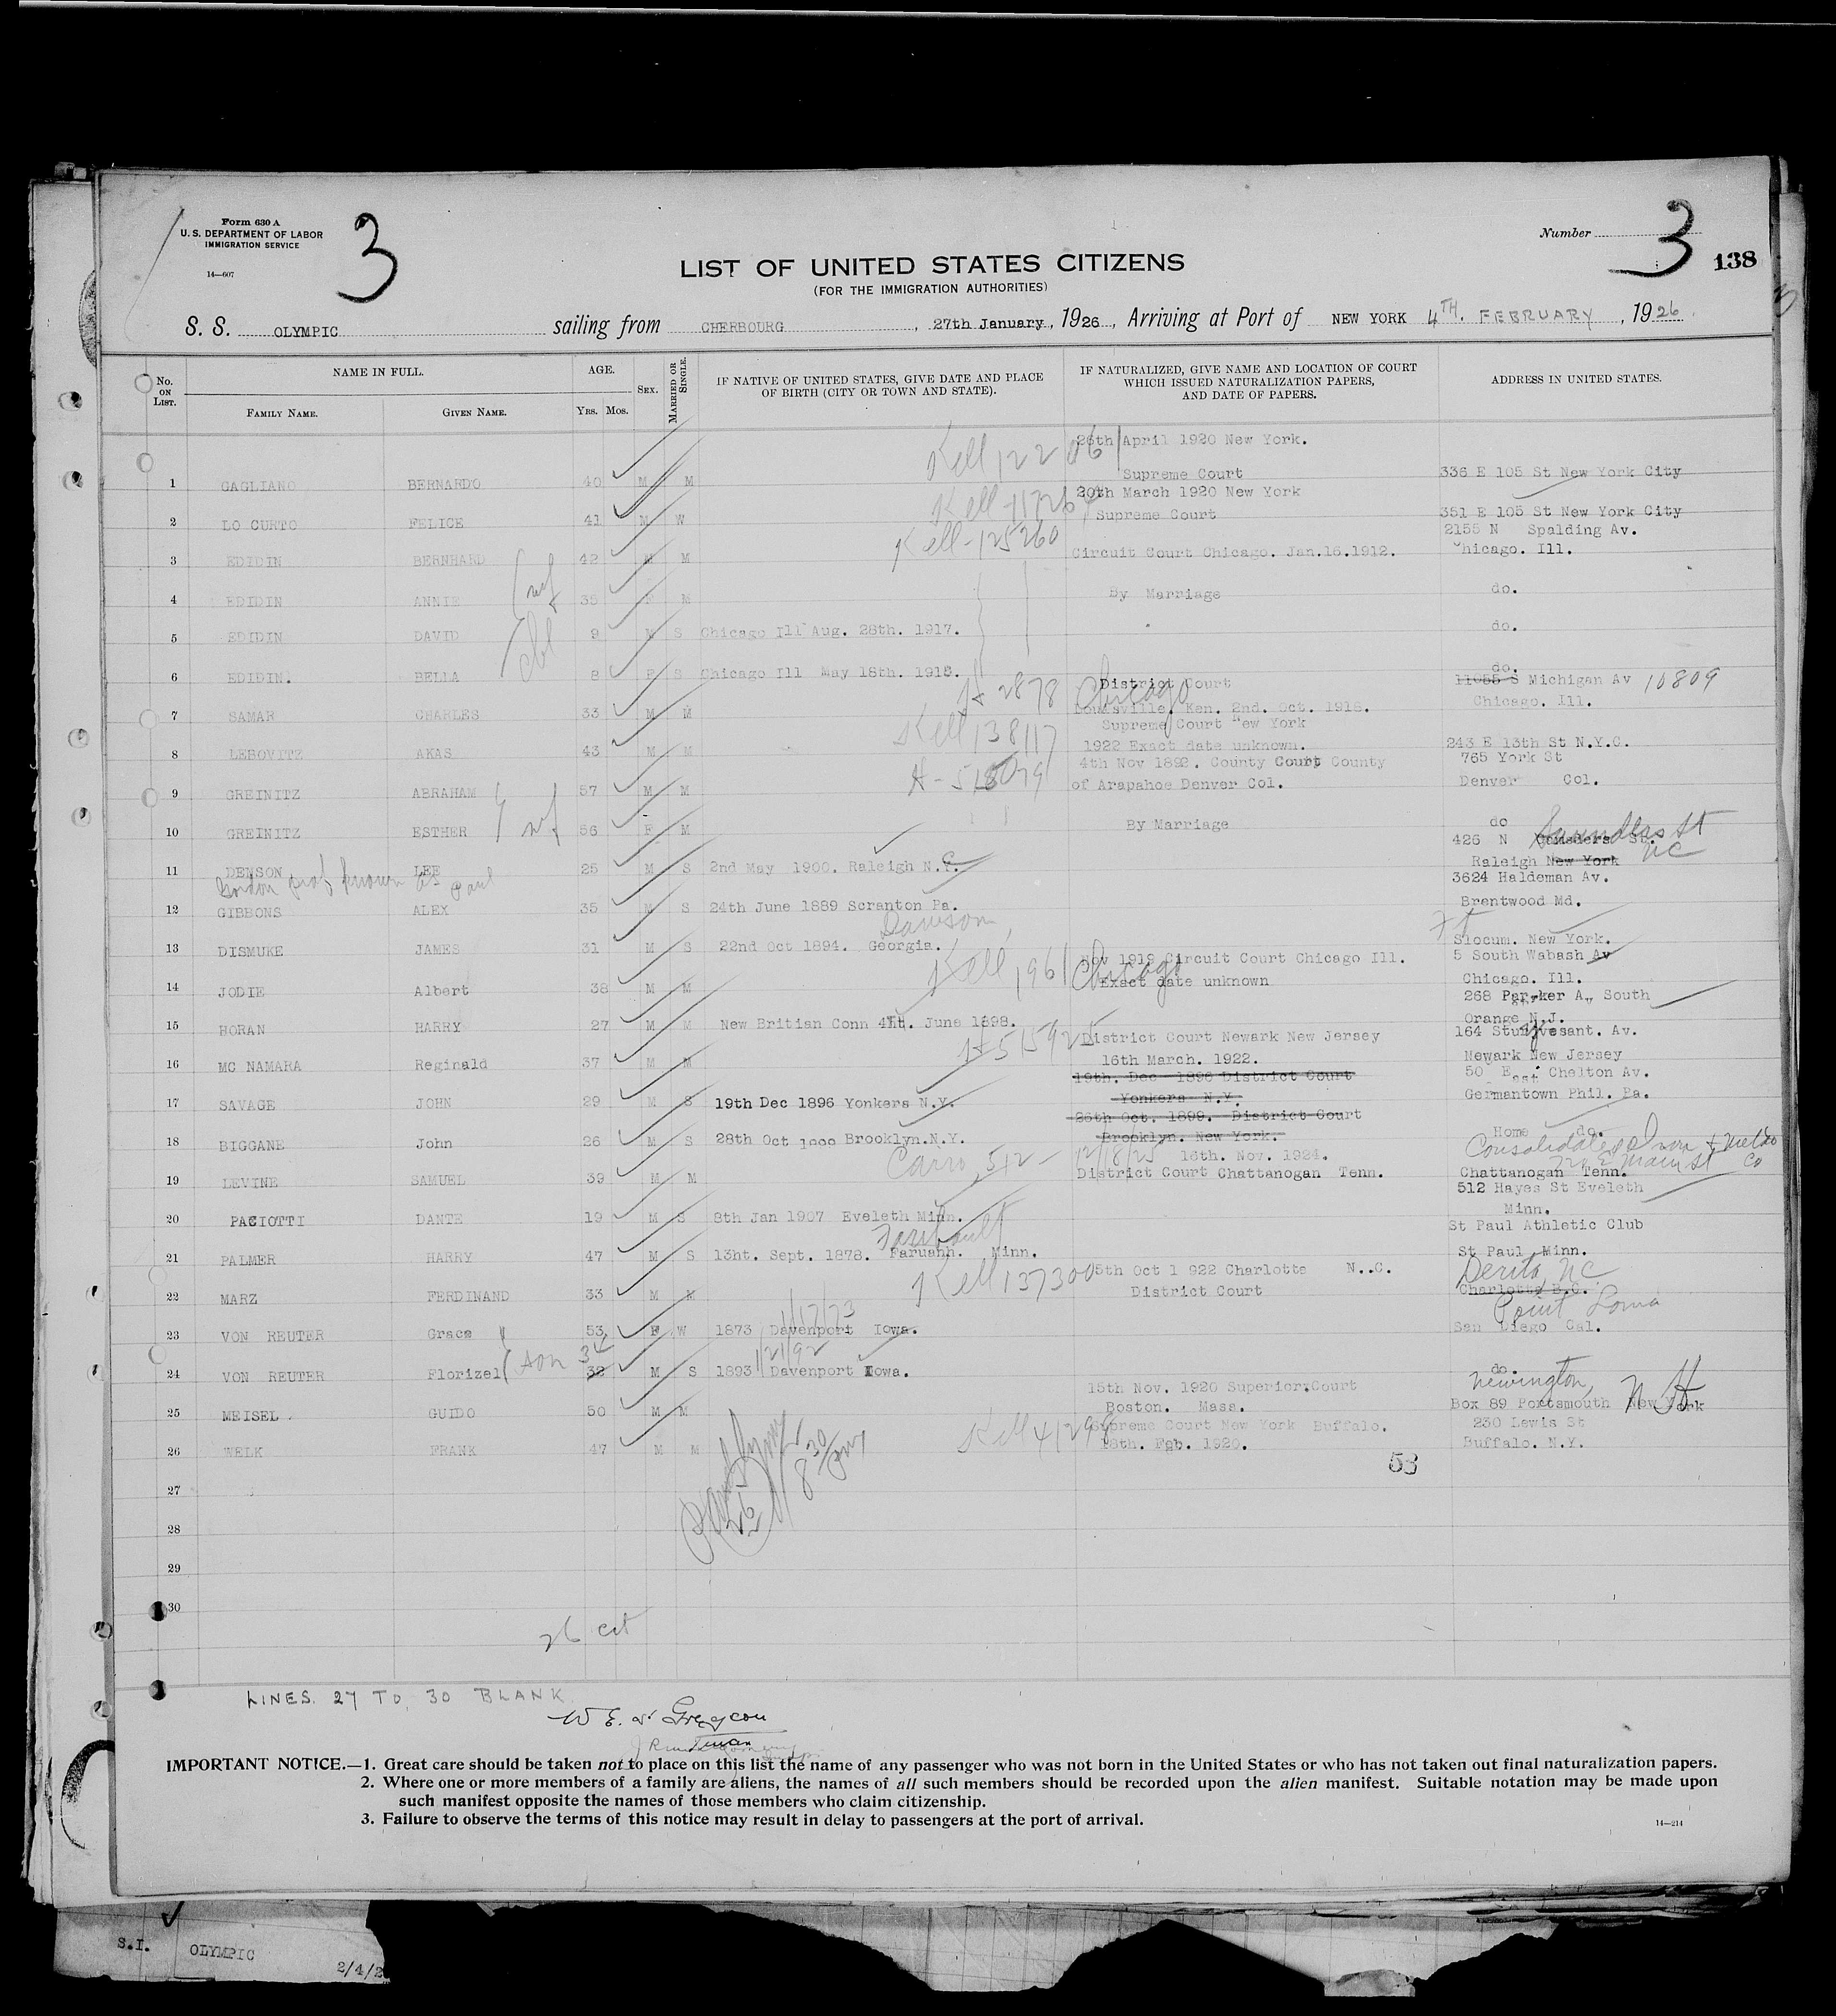 Form 630 A
U. S. DEPARTMENT OF LABOR
IMMIGRATION SERVICE
14—607
3
Number 3
138
LIST OF UNITED STATES CITIZENS
(FOR THE IMMIGRATION AUTHORITIES)
S. S. OLYMPIC sailing from CHERBOURG, 27th January, 1926, Arriving at Port of NEW YORK 4TH. FEBRUARY, 1926.
No. ON LIST.
NAME IN FULL.
FAMILY NAME.
GIVEN NAME.
AGE.
YRS. MOS.
SEX.
MARRIED OR SINGLE.
IF NATIVE OF UNITED STATES, GIVE DATE AND PLACE OF BIRTH (CITY OR TOWN AND STATE).
IF NATURALIZED, GIVE NAME AND LOCATION OF COURT WHICH ISSUED NATURALIZATION PAPERS, AND DATE OF PAPERS.
ADDRESS IN UNITED STATES.
Kell 12206 26th April 1920 New York.
1 GAGLIANO BERNARDO 40 M M Supreme Court 336 E 105 St New York City
20th March 1920 New York
2 LO CURTO FELICE 41 M W Supreme Court 351 E 105 St New York City
Kell-125260 2155 N Spalding Av.
3 EDIDIN BERNHARD 42 M M Circuit Court Chicago. Jan.16.1912. Chicago. Ill.
4 EDIDIN ANNIE wf 35 F M By Marriage do.
5 EDIDIN DAVID 9 M S Chicago Ill Aug. 28th. 1917. do.
6 EDIDIN. BELLA 8 F S Chicago Ill May 18th. 1918. do.
2878 Chicago District Court 11055 S Michigan Av 10809
7 SAMAR CHARLES 33 M M Louisville. Ken. 2nd. Oct. 1918. Chicago. Ill.
Kell 138117 Supreme Court New York
8 LEBOVITZ AKAS 43 M M 1922 Exact date unknown. 243 E 13th St N.Y.C.
4th Nov 1892. County Court County 765 York St
9 GREINITZ ABRAHAM 57 M M of Arapahoe Denver Col. Denver Col.
10 GREINITZ ESTHER wf 56 F M By Marriage do
426 N Saunders St
11 DENSON LEE 25 M S 2nd May 1900. Raleigh N.C. Raleigh New York NC
known as Paul 3624 Haldeman Av.
12 GIBBONS ALEX 35 M S 24th June 1889 Scranton Pa. Brentwood Md.
Dawson, Ft
13 DISMUKE JAMES 31 M S 22nd Oct 1894. Georgia. Slocum. New York.
Kell 1961 Chicago Nov 1919 Circuit Court Chicago Ill. 5 South Wabash Av
14 JODIE Albert 38 M M Exact date unknown Chicago. Ill.
268 Parker A., South
15 HORAN HARRY 27 M M New Britian Conn 4th. June 1898. Orange N.J.
District Court Newark New Jersey 164 Stuyvesant. Av.
16 MC NAMARA Reginald 37 M M 16th March. 1922. Newark New Jersey
19th. Dec 1896 District Court 50 East Chelton Av.
17 SAVAGE JOHN 29 M S 19th Dec 1896 Yonkers N.Y. Yonkers N.Y. Germantown Phil. Pa.
26th Oct. 1899. District Court
18 BIGGANE John 26 M S 28th Oct Brooklyn.N.Y. Brooklyn. New York. Home do.
12/18/25 16th. Nov. 1924. Consolidated Iron & Metal Co
19 LEVINE SAMUEL 39 M M District Court Chattanogan Tenn. Chattanogan Tenn.
512 Hayes St Eveleth
20 PACIOTTI DANTE 19 M S 8th Jan 1907 Eveleth Minn. Minn.
Faribault St Paul Athletic Club
21 PALMER HARRY 47 M S 13ht. Sept. 1878. Faruahh. Minn. St Paul Minn.
Kell 137300 5th Oct 1 922 Charlotte N..C. Derita, NC
22 MARZ FERDINAND 33 M M District Court Charlotte B.C.
1/17/73 Point Loma
23 VON REUTER Grace 53 F W 1873 Davenport Iowa. San Diego Cal.
1/21/92
24 VON REUTER Florizel son 34 32 M S 1893 Davenport Iowa. do.
15th Nov. 1920 Superior.Court Newington,
25 MEISEL GUIDO 50 M M Boston. Mass. Box 89 Portsmouth New York NH
Supreme Court New York Buffalo. 230 Lewis St
26 WELK FRANK 47 M M 18th. Feb. 1920. Buffalo. N.Y.
53
27
28
29
30
26 cit
LINES. 27 TO 30 BLANK
IMPORTANT NOTICE.—1. Great care should be taken not to place on this list the name of any passenger who was not born in the United States or who has not taken out final naturalization papers.
2. Where one or more members of a family are aliens, the names of all such members should be recorded upon the alien manifest. Suitable notation may be made upon
such manifest opposite the names of those members who claim citizenship.
3. Failure to observe the terms of this notice may result in delay to passengers at the port of arrival.
14—214
S.I. OLYMPIC
2/4/2